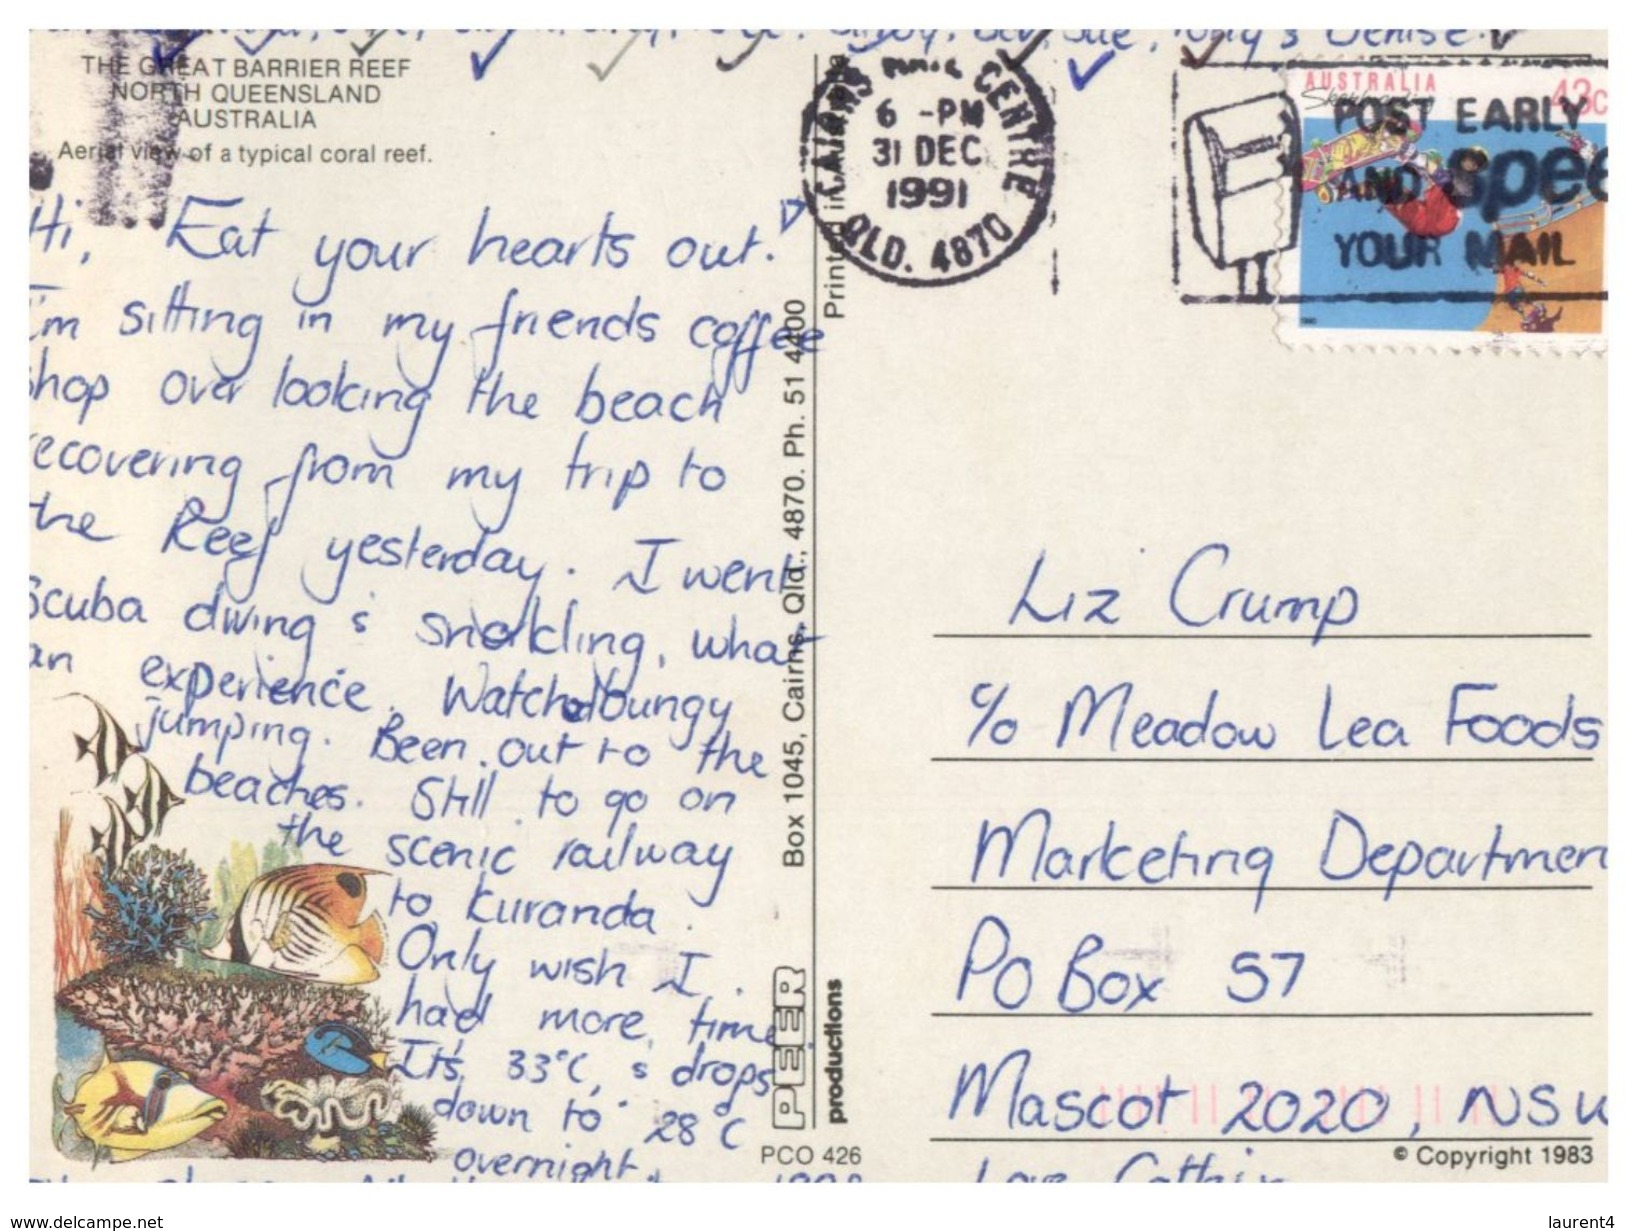 Sue, Tony & Denise.
THE GREAT BARRIER REEF
NORTH QUEENSLAND
AUSTRALIA
Aerial view of a typical coral reef.
Hi, Eat your hearts out!
I'm sitting in my friends coffee
shop over looking the beach
recovering from my trip to
the Reef yesterday. I went
Scuba diving & snorkling, what
an experience. Watched bungy
jumping. Been out to the
beaches. Still to go on
the scenic railway
to Kuranda.
Only wish I
had more time
It's 33°C, & drops
down to 28°C
overnight.
Printed in Australia
Box 1045, Cairns, Qld., 4870. Ph. 51 4400
PEER
productions
PCO 426
CAIRNS MAIL CENTRE
6 -PM
31 DEC
1991
QLD. 4870
AUSTRALIA
Skateboarding
43c
POST EARLY
AND spee
YOUR MAIL
Liz Crump
c/o Meadow Lea Foods
Marketing Departmen
PO Box 57
Mascot 2020, NSW
© Copyright 1983
Love Cathie
www.delcampe.net
laurent4